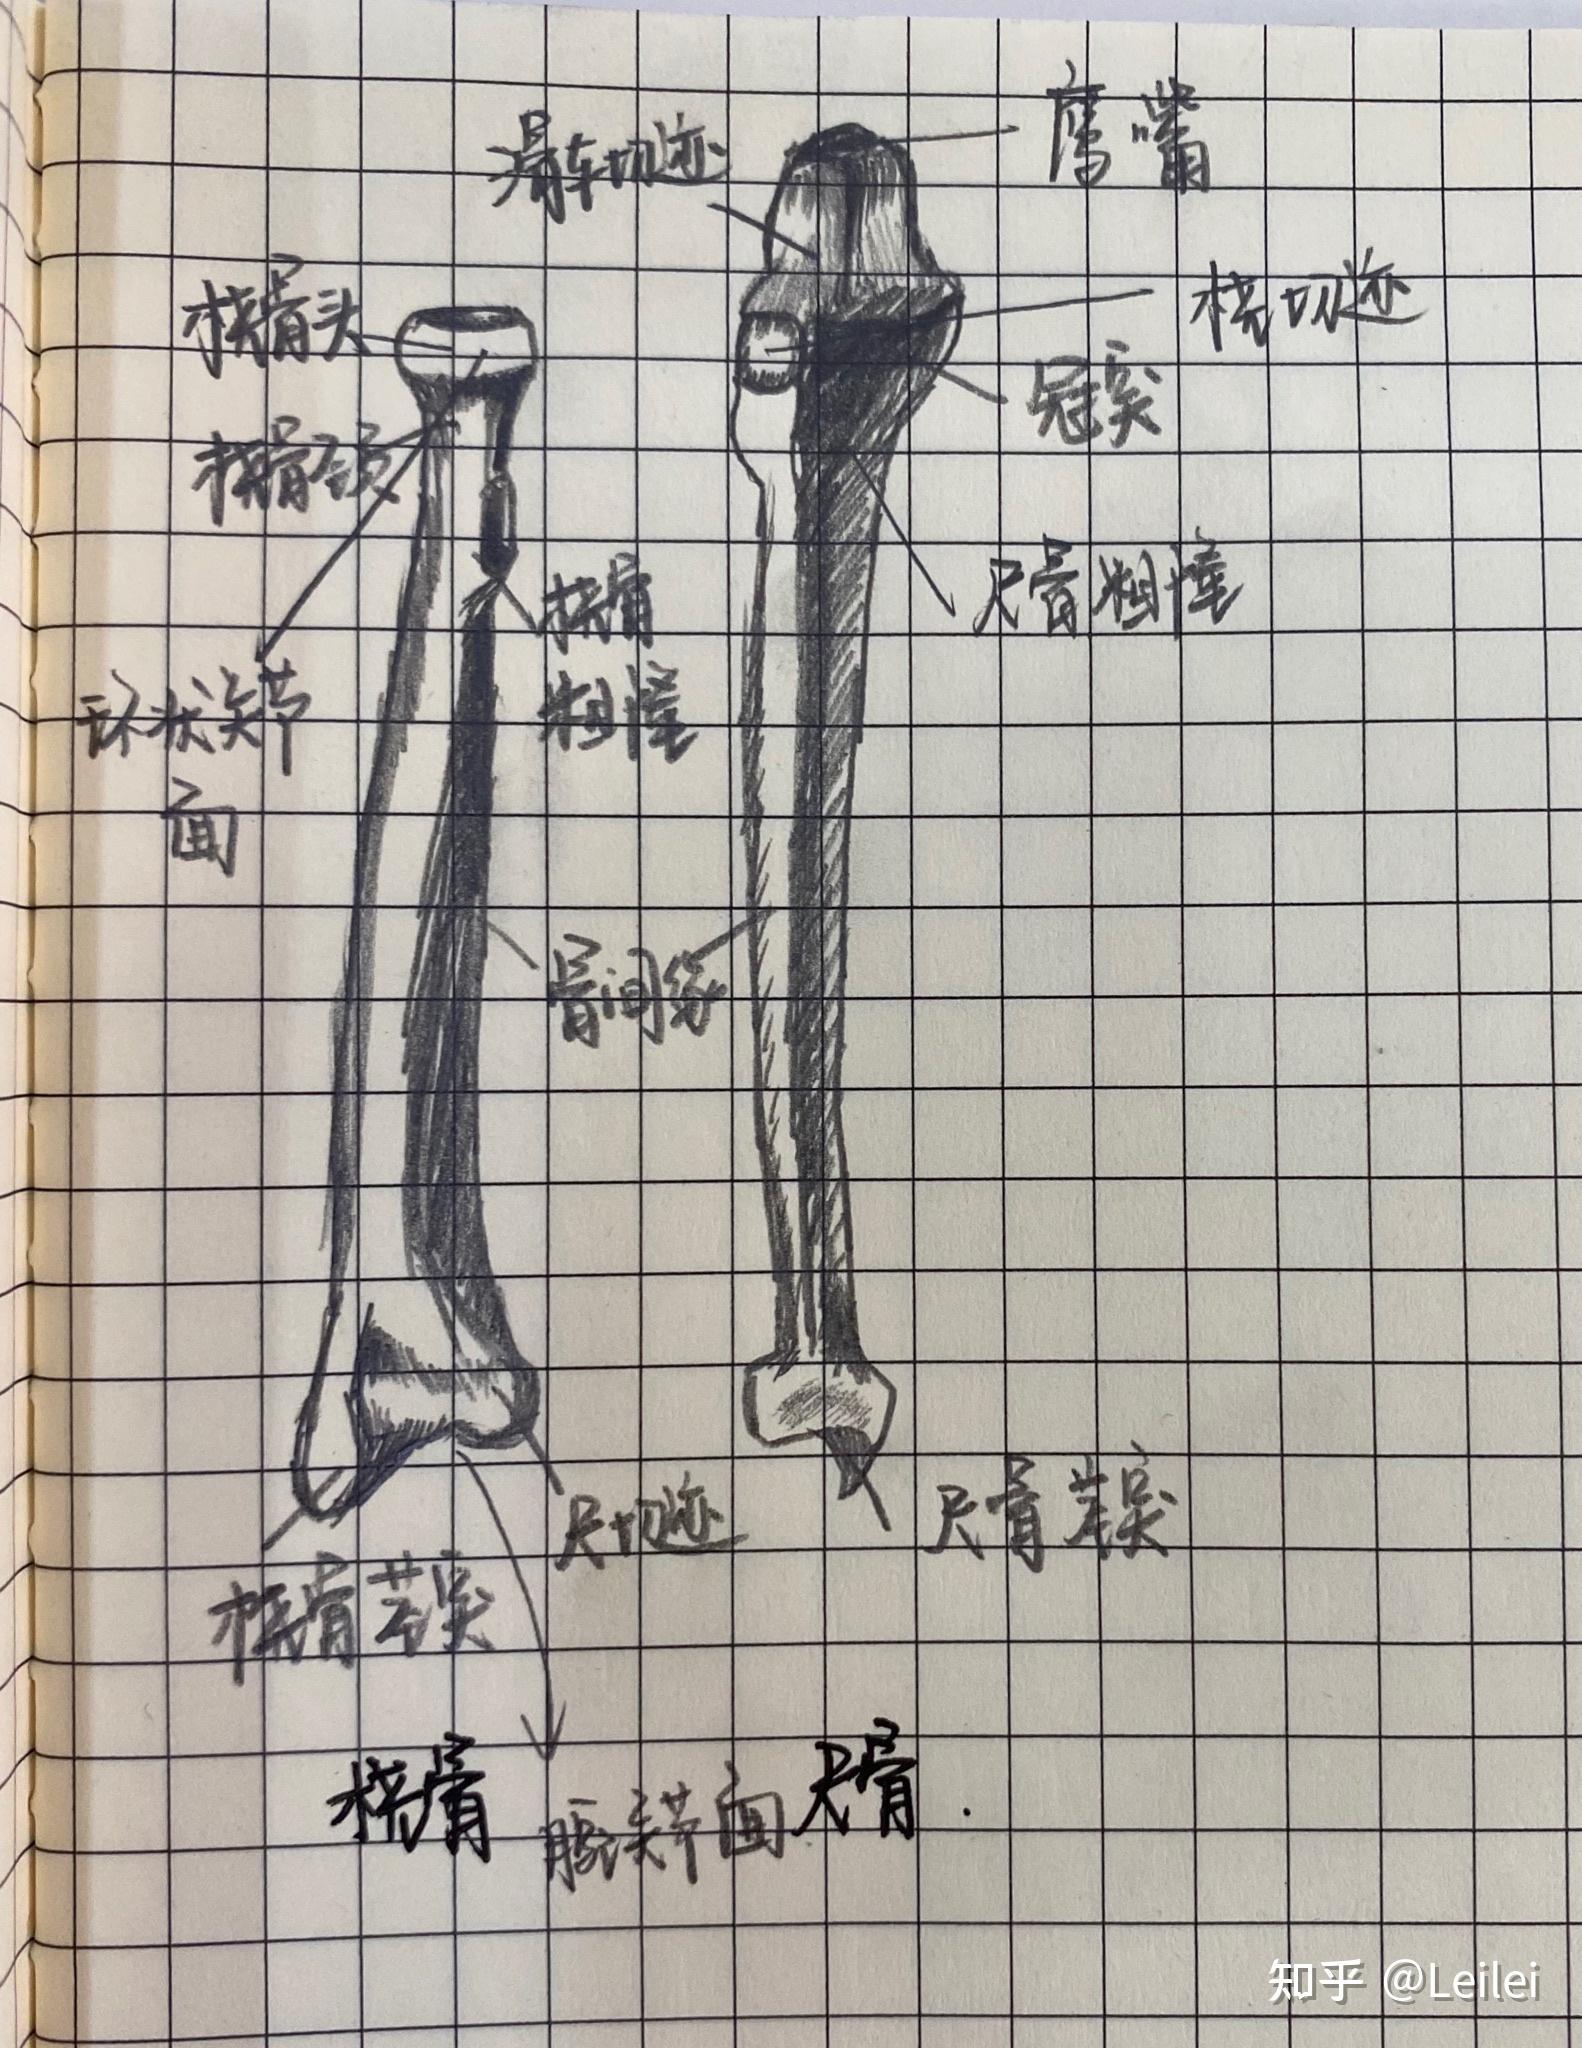 鹰嘴
滑车切迹
桡切迹
桡骨头
冠突
桡骨颈
尺骨粗隆
桡骨
粗隆
环状关节
面
骨间缘
尺切迹
尺骨茎突
桡骨茎突
桡骨
腕关节面
尺骨.
知乎 @Leilei